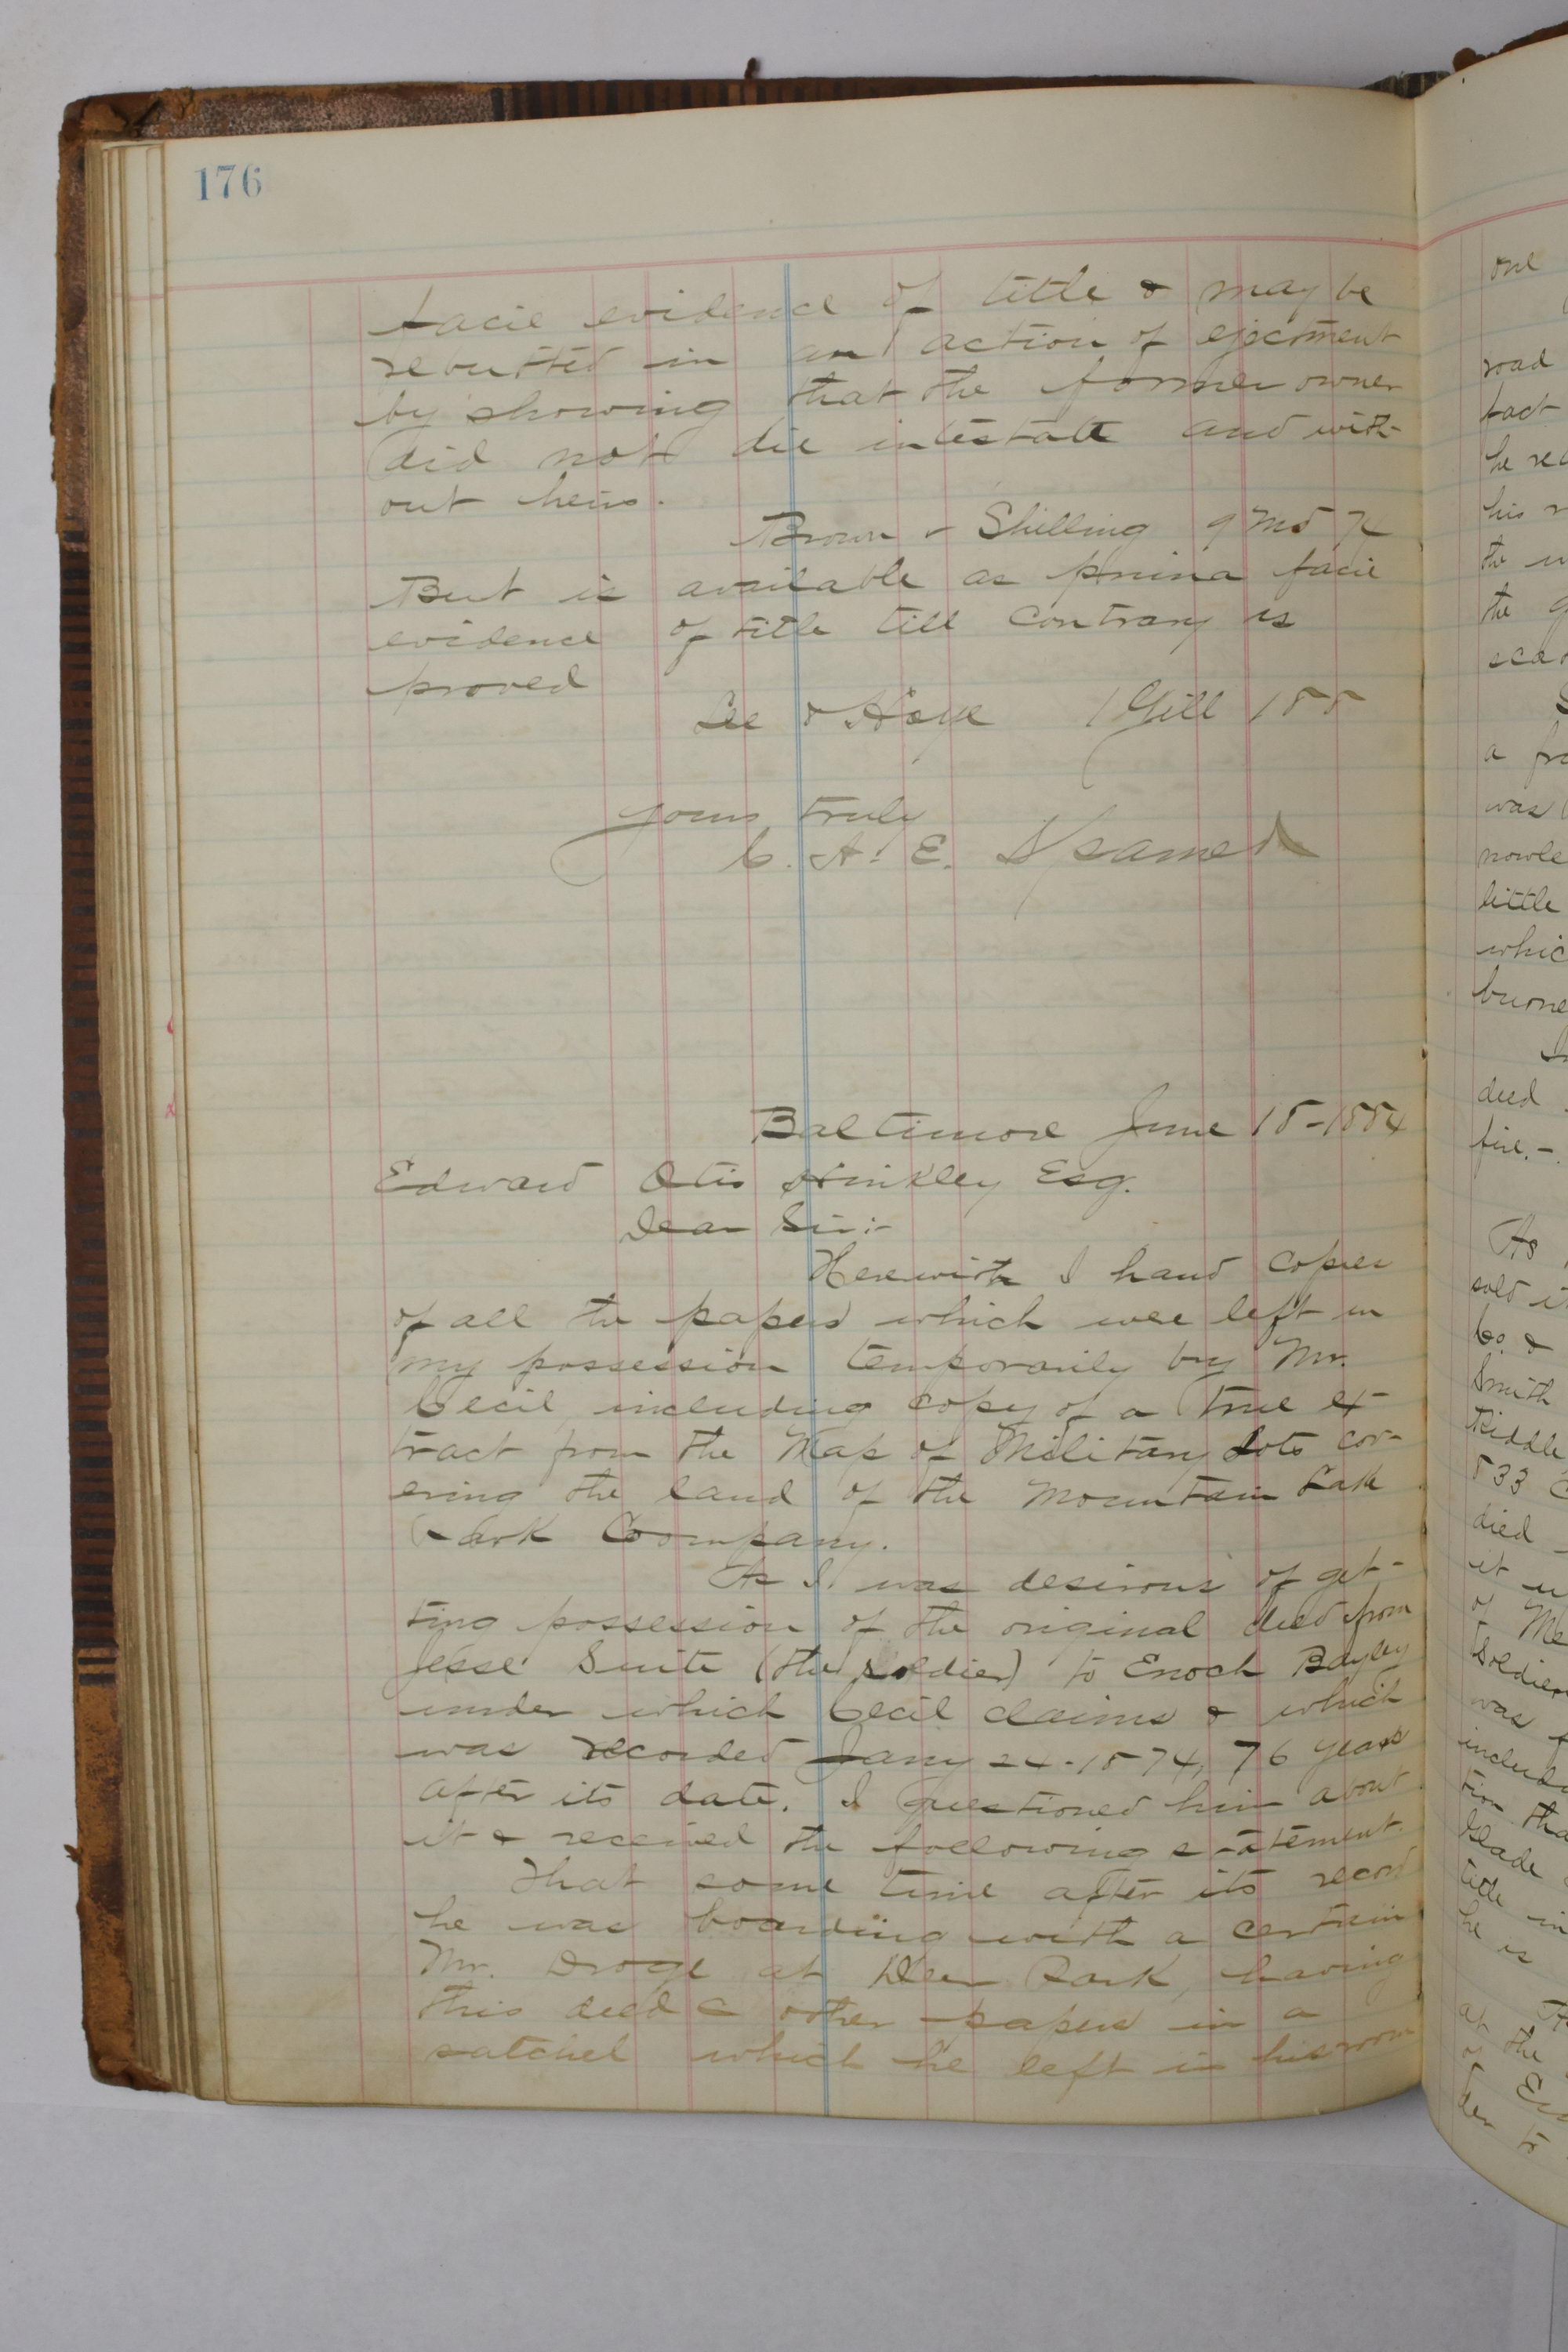 176
facie evidence of title & may be
rebutted in an action of ejectment
by showing that the former owner
did not die intestate and with-
out heirs.
Brown & Shilling 9 Md 74
But is available as prima facie
evidence of title till contrary is
proved
Lee & Hoye 1 Gill 188
Yours truly
C. H. E.
Baltimore June 18-1884
Edward Otis Hinkley Esq.
Dear Sir:-
Herewith I hand copies
of all the papers which were left in
my possession temporarily by Mr.
Cecil, including copy of a true ex-
tract from the Map of Military Lots cov-
ering the land of the Mountain Lake
Park Coompany.
As I was desirous of get-
ting possession of the original deed from
Jesse Suite (the soldier) to Enoch Bayley
under which Cecil claims & which
was recorded Jany 24-1874, 76 years
after its date. I questioned him about
it & received the following statement.
That some time after its record
he was boarding with a certain
Mr. Droge at Deer Park, having
this deed & other papers in a
satchel which he left in his room
one
road
fact
his
the
the
a
was
little
deed
fire.-
As
sold
Co. &
Smith
Riddle
533
died
it
of
Soldier
was
tion
Glade
title in
he is
at the
of